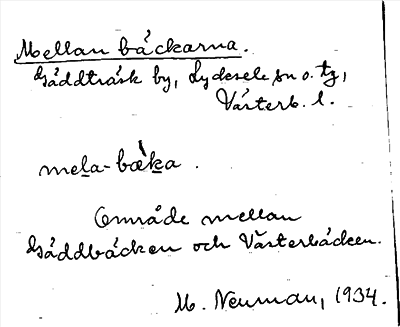 Mellan bäckarna.
Gäddträsk by, Lycksele sn o. tg,
Västerb. l.
mela-bæka.
Område mellan
Gäddbäcken och Västerbäcken.
M. Neuman, 1934.